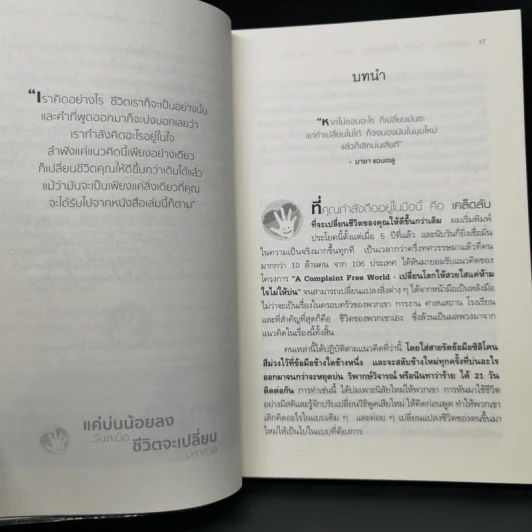 "เราคิดอย่างไร ชีวิตเราก็จะเป็นอย่างนั้น
และคำที่พูดออกมาก็จะบ่งบอกเลยว่า
เรากำลังคิดอะไรอยู่ในใจ
ลำพังแค่แนวคิดนี้เพียงอย่างเดียว
ก็เปลี่ยนชีวิตคุณให้ดีขึ้นกว่าเดิมได้แล้ว
แม้ว่ามันจะเป็นเพียงแค่สิ่งเดียวที่คุณ
จะได้รับไปจากหนังสือเล่มนี้ก็ตาม"
แค่บ่นน้อยลง
...วันละนิด
ชีวิตจะเปลี่ยน
...มหาศาล
17
บทนำ
"หากไม่ชอบอะไร ก็เปลี่ยนมันซะ
แต่ถ้าเปลี่ยนไม่ได้ ก็จงมองมันในมุมใหม่
แล้วก็เลิกบ่นเสียที"
- มายา แอนเจลู
ที่คุณกำลังถืออยู่ในมือนี้ คือ เคล็ดลับ
ที่จะเปลี่ยนชีวิตของคุณให้ดีขึ้นกว่าเดิม ผมเริ่มพิมพ์
ประโยคนี้ตั้งแต่เมื่อ 5 ปีที่แล้ว และนับวันก็ยิ่งเชื่อมั่น
ในความเป็นจริงมากขึ้นทุกที เป็นเวลากว่าครึ่งทศวรรษมาแล้วที่คน
มากกว่า 10 ล้านคน จาก 106 ประเทศ ได้หันมายอมรับแนวคิดของ
โครงการ "A Complaint Free World - เปลี่ยนโลกให้สวยใสแค่ห้าม
ใจไม่ให้บ่น" จนสามารถเปลี่ยนแปลงสิ่งต่าง ๆ ได้จากหน้ามือเป็นหลังมือ
ไม่ว่าจะเป็นเรื่องในครอบครัวของพวกเขา การงาน ศาสนสถาน โรงเรียน
และที่สำคัญที่สุดก็คือ ชีวิตของพวกเขาเอง ซึ่งล้วนเป็นผลพวงมาจาก
แนวคิดในเรื่องนี้ทั้งสิ้น
คนเหล่านี้ได้ปฏิบัติตามแนวคิดที่ว่านี้ โดยใส่สายรัดข้อมือซิลิโคน
สีม่วงไว้ที่ข้อมือข้างใดข้างหนึ่ง และจะสลับข้างใหม่ทุกครั้งที่บ่นอะไร
ออกมาจนกว่าจะหยุดบ่น วิพากษ์วิจารณ์ หรือนินทาว่าร้าย ได้ 21 วัน
ติดต่อกัน การทำเช่นนี้ ได้บ่มเพาะนิสัยใหม่ให้พวกเขา การหันมาใช้ชีวิต
อย่างมีสติและรู้จักปรับเปลี่ยนวิธีพูดเสียใหม่ ให้คิดก่อนพูด ทำให้พวกเขา
เลิกคิดอะไรในแบบเดิม ๆ และค่อย ๆ เปลี่ยนแปลงชีวิตของตนขึ้นมา
ใหม่ให้เป็นไปในแบบที่ต้องการ